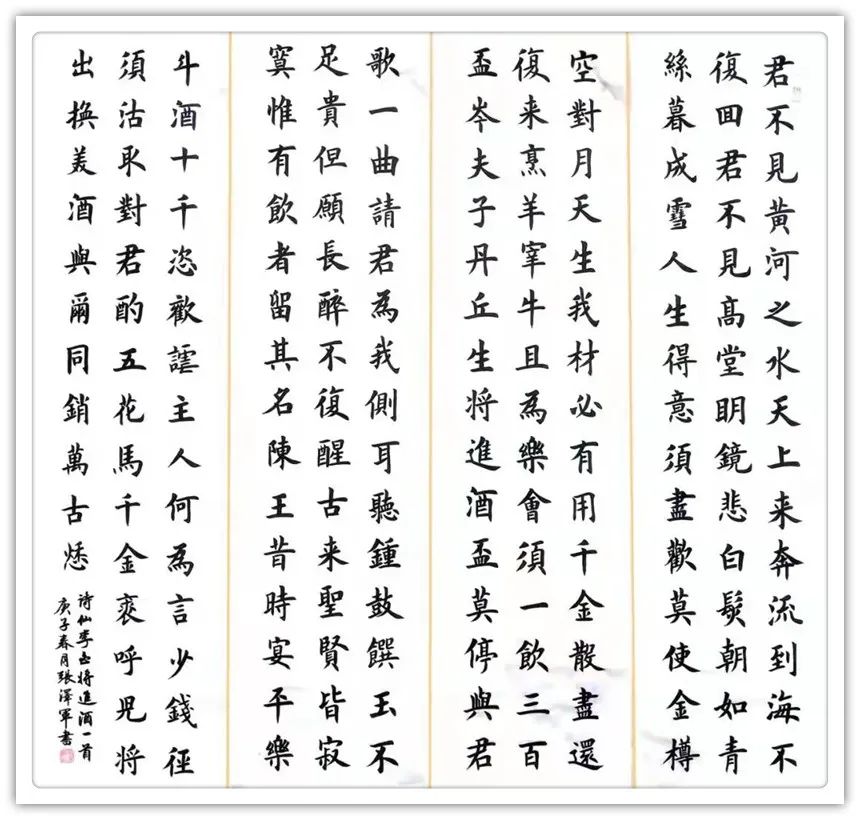 君不見黄河之水天上来奔流到海不
復囬君不見高堂眀鏡悲白髮朝如青
絲暮成雪人生得意須盡歡莫使金樽
空對月天生我材必有用千金散盡還
復来烹羊宰牛且為樂會須一飲三百
盃岑夫子丹丘生将進酒盃莫停與君
歌一曲請君為我側耳聽鍾鼓饌玉不
足貴但願長醉不復醒古来聖賢皆寂
寞惟有飲者留其名陳王昔時宴平樂
斗酒十千恣歡謔主人何為言少錢徑
須沽取對君酌五花馬千金裘呼兒将
出換美酒與爾同銷萬古愁
诗仙李白将進酒一首
庚子春月張澤軍書